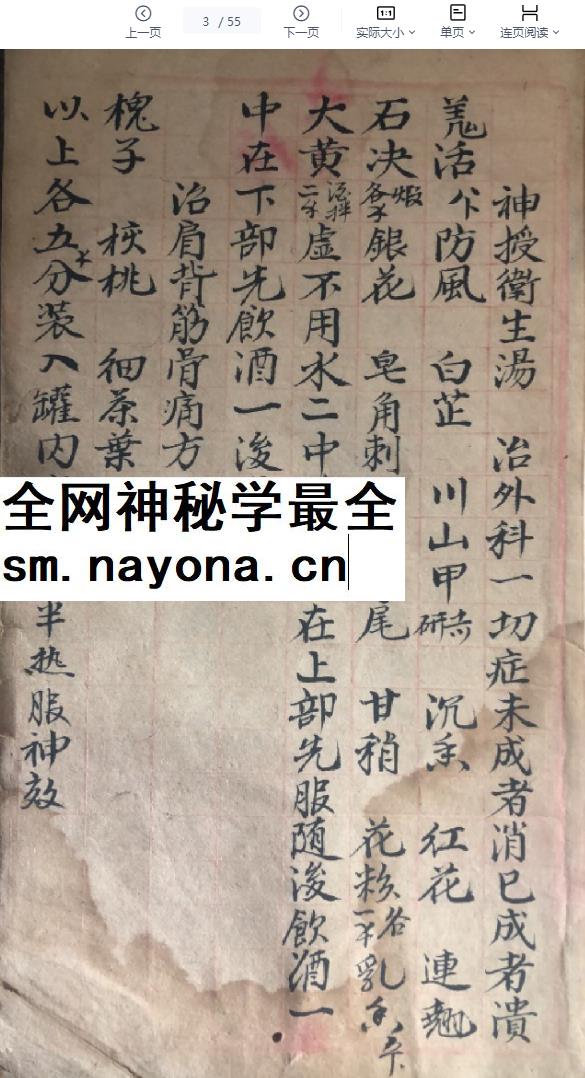 上一页
3 / 55
下一页
实际大小
单页
连页阅读
神授衛生湯 治外科一切症未成者消已成者潰
羗活 防風 白芷 川山甲 沉香 红花 連翹
石决 銀花 皂角刺 尾 甘稍 花粉 乳香
大黄 虚不用水二中 在上部先服随浚飲酒一
中在下部先飲酒一浚
治肩背筋骨痛方
槐子 核桃 细茶葉
以上各五分装入罐内 半热服神效
全网神秘学最全
sm.nayona.cn